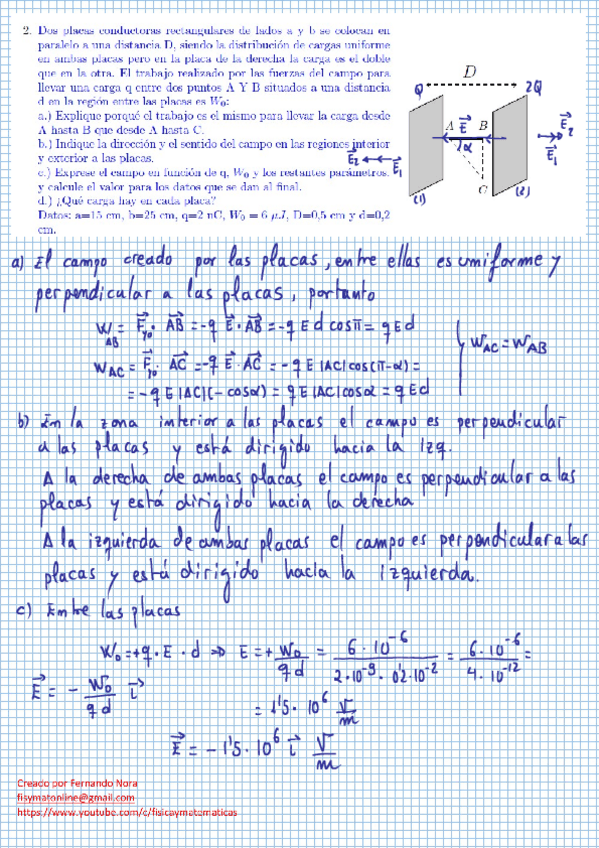 2. Dos placas conductoras rectangulares de lados a y b se colocan en
paralelo a una distancia D, siendo la distribución de cargas uniforme
en ambas placas pero en la placa de la derecha la carga es el doble
que en la otra. El trabajo realizado por las fuerzas del campo para
llevar una carga q entre dos puntos A Y B situados a una distancia
d en la región entre las placas es W₀:
a.) Explique porqué el trabajo es el mismo para llevar la carga desde
A hasta B que desde A hasta C.
b.) Indique la dirección y el sentido del campo en las regiones interior
y exterior a las placas.
c.) Exprese el campo en función de q, W₀ y los restantes parámetros.
y calcule el valor para los datos que se dan al final.
d.) ¿Qué carga hay en cada placa?
Datos: a=15 cm, b=25 cm, q=2 nC, W₀ = 6 μJ, D=0,5 cm y d=0,2
cm.
D
Q 2Q
A E⃗ B
α
C
E⃗₂ E⃗₁
E⃗₂
E⃗₁
(1) (2)
a) El campo creado por las placas, entre ellas es uniforme y
perpendicular a las placas, portanto
W_AB = F⃗ · AB⃗ = -q E⃗ · AB⃗ = -q E d cos π = q E d
W_AC = F⃗ · AC⃗ = -q E⃗ · AC⃗ = -q E |AC| cos(π-α) =
= -q E |AC| (-cos α) = q E |AC| cos α = q E d
W_AC = W_AB
b) En la zona interior a las placas el campo es perpendicular
a las placas y está dirigido hacia la izq.
A la derecha de ambas placas el campo es perpendicular a las
placas y está dirigido hacia la derecha
A la izquierda de ambas placas el campo es perpendicular a las
placas y está dirigido hacia la izquierda.
c) Entre las placas
W₀ = +q · E · d ⇒ E = + W₀/(q d) = 6·10⁻⁶/(2·10⁻⁹ · 0'2·10⁻²) = 6·10⁻⁶/(4·10⁻¹²) =
E⃗ = - W₀/(q d) i⃗
= 1'5 · 10⁶ V/m
E⃗ = -1'5 · 10⁶ i⃗ V/m
Creado por Fernando Nora
fisymatonline@gmail.com
https://www.youtube.com/c/fisicaymatematicas